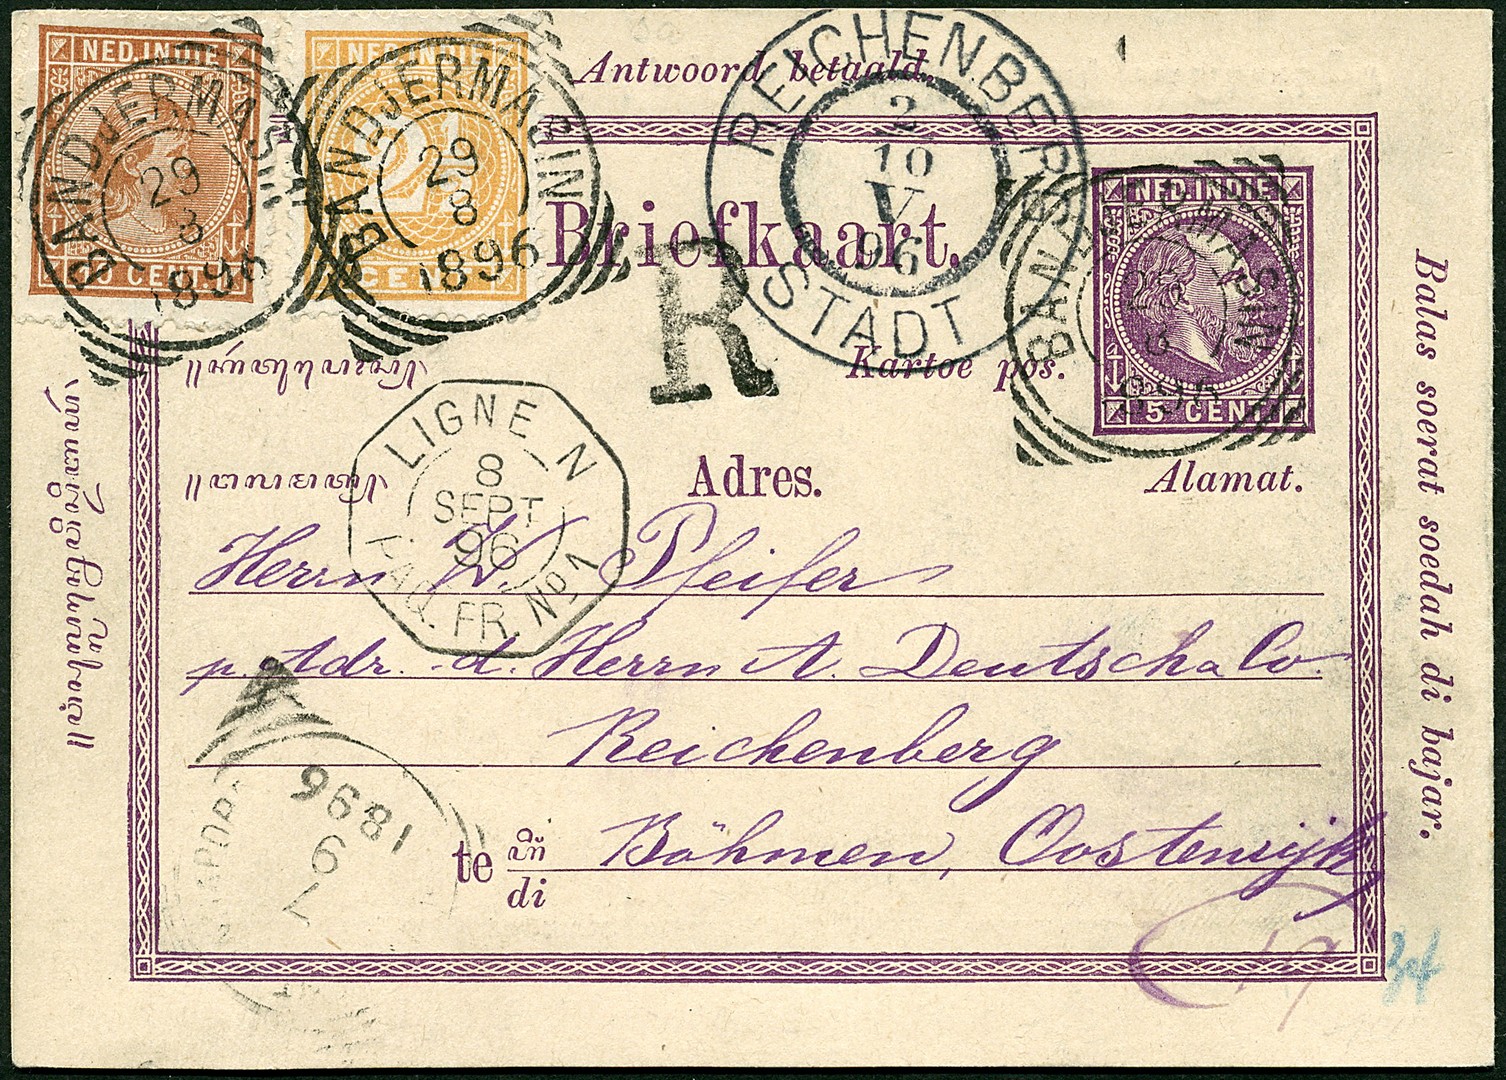 NED. INDIE
10 CENT.
BANDJERMASIN
29
8
1896
NED. INDIE
2½
CENT
BANDJERMASIN
29
8
1896
Antwoord betaald.
REICHENBERG
STADT
2
10
V
96
NED. INDIE
5 CENT
BANDJERMASIN
Briefkaart.
R
Kartoe pos.
LIGNE N
8
SEPT
96
PAQ. FR. No 1
Adres.
Alamat.
Herrn W. Pfeifer
p. Adr. d. Herrn A. Deutsch & Co
Reichenberg
te
di
Böhmen, Oostenrijk
1896
9
7
Balas soerat soedah di bajar.